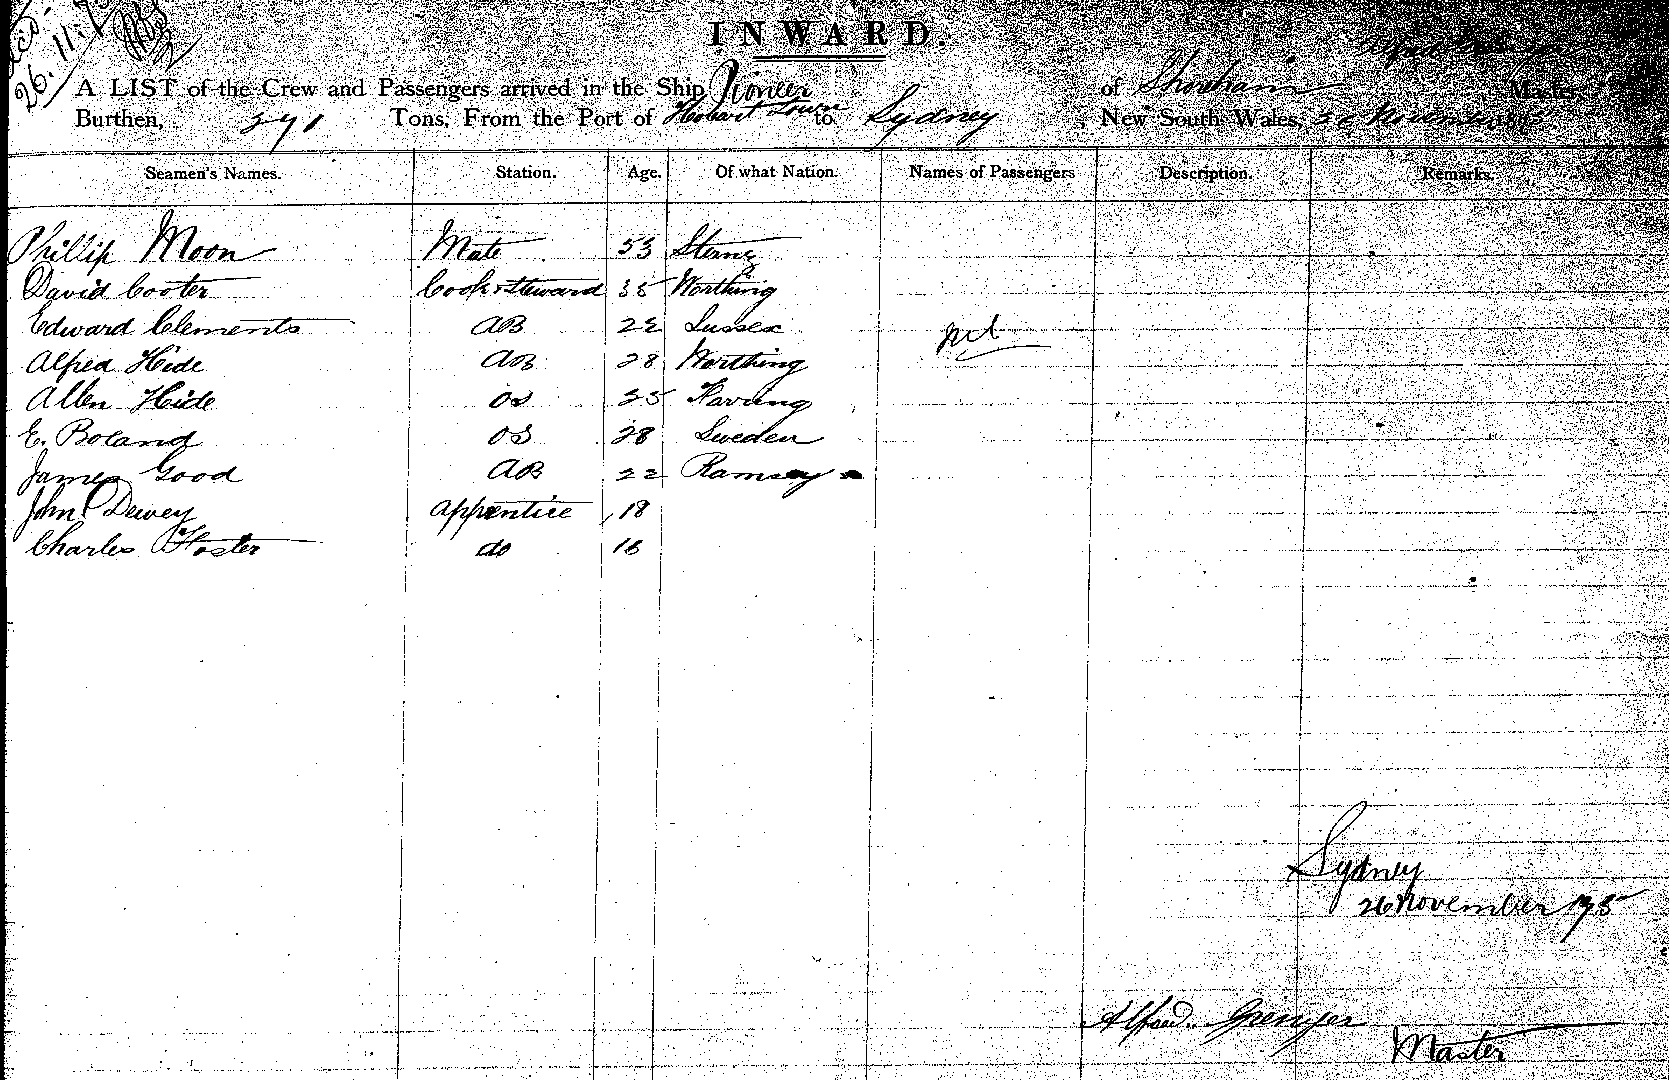 26.11.75
INWARD.
A LIST of the Crew and Passengers arrived in the Ship Pioneer of Shoreham Master
Burthen, Tons, From the Port of Hobart Town to Sydney New South Wales, 26 November
Seamen's Names. Station. Age. Of what Nation. Names of Passengers Description. Remarks.
Phillip Moon Mate 53
David Cooter Cook & Steward 35 Worthing
Edward Clements AB 22 Sussex
Alfred Hide AB 28 Worthing
Allen Hide OS 25
E. Boland OS 28 Sweden
James Good AB 22 Ramsey
John Dewey Apprentice 18
Charles Foster do 16
Sydney
26 November 75
Alfred
Master